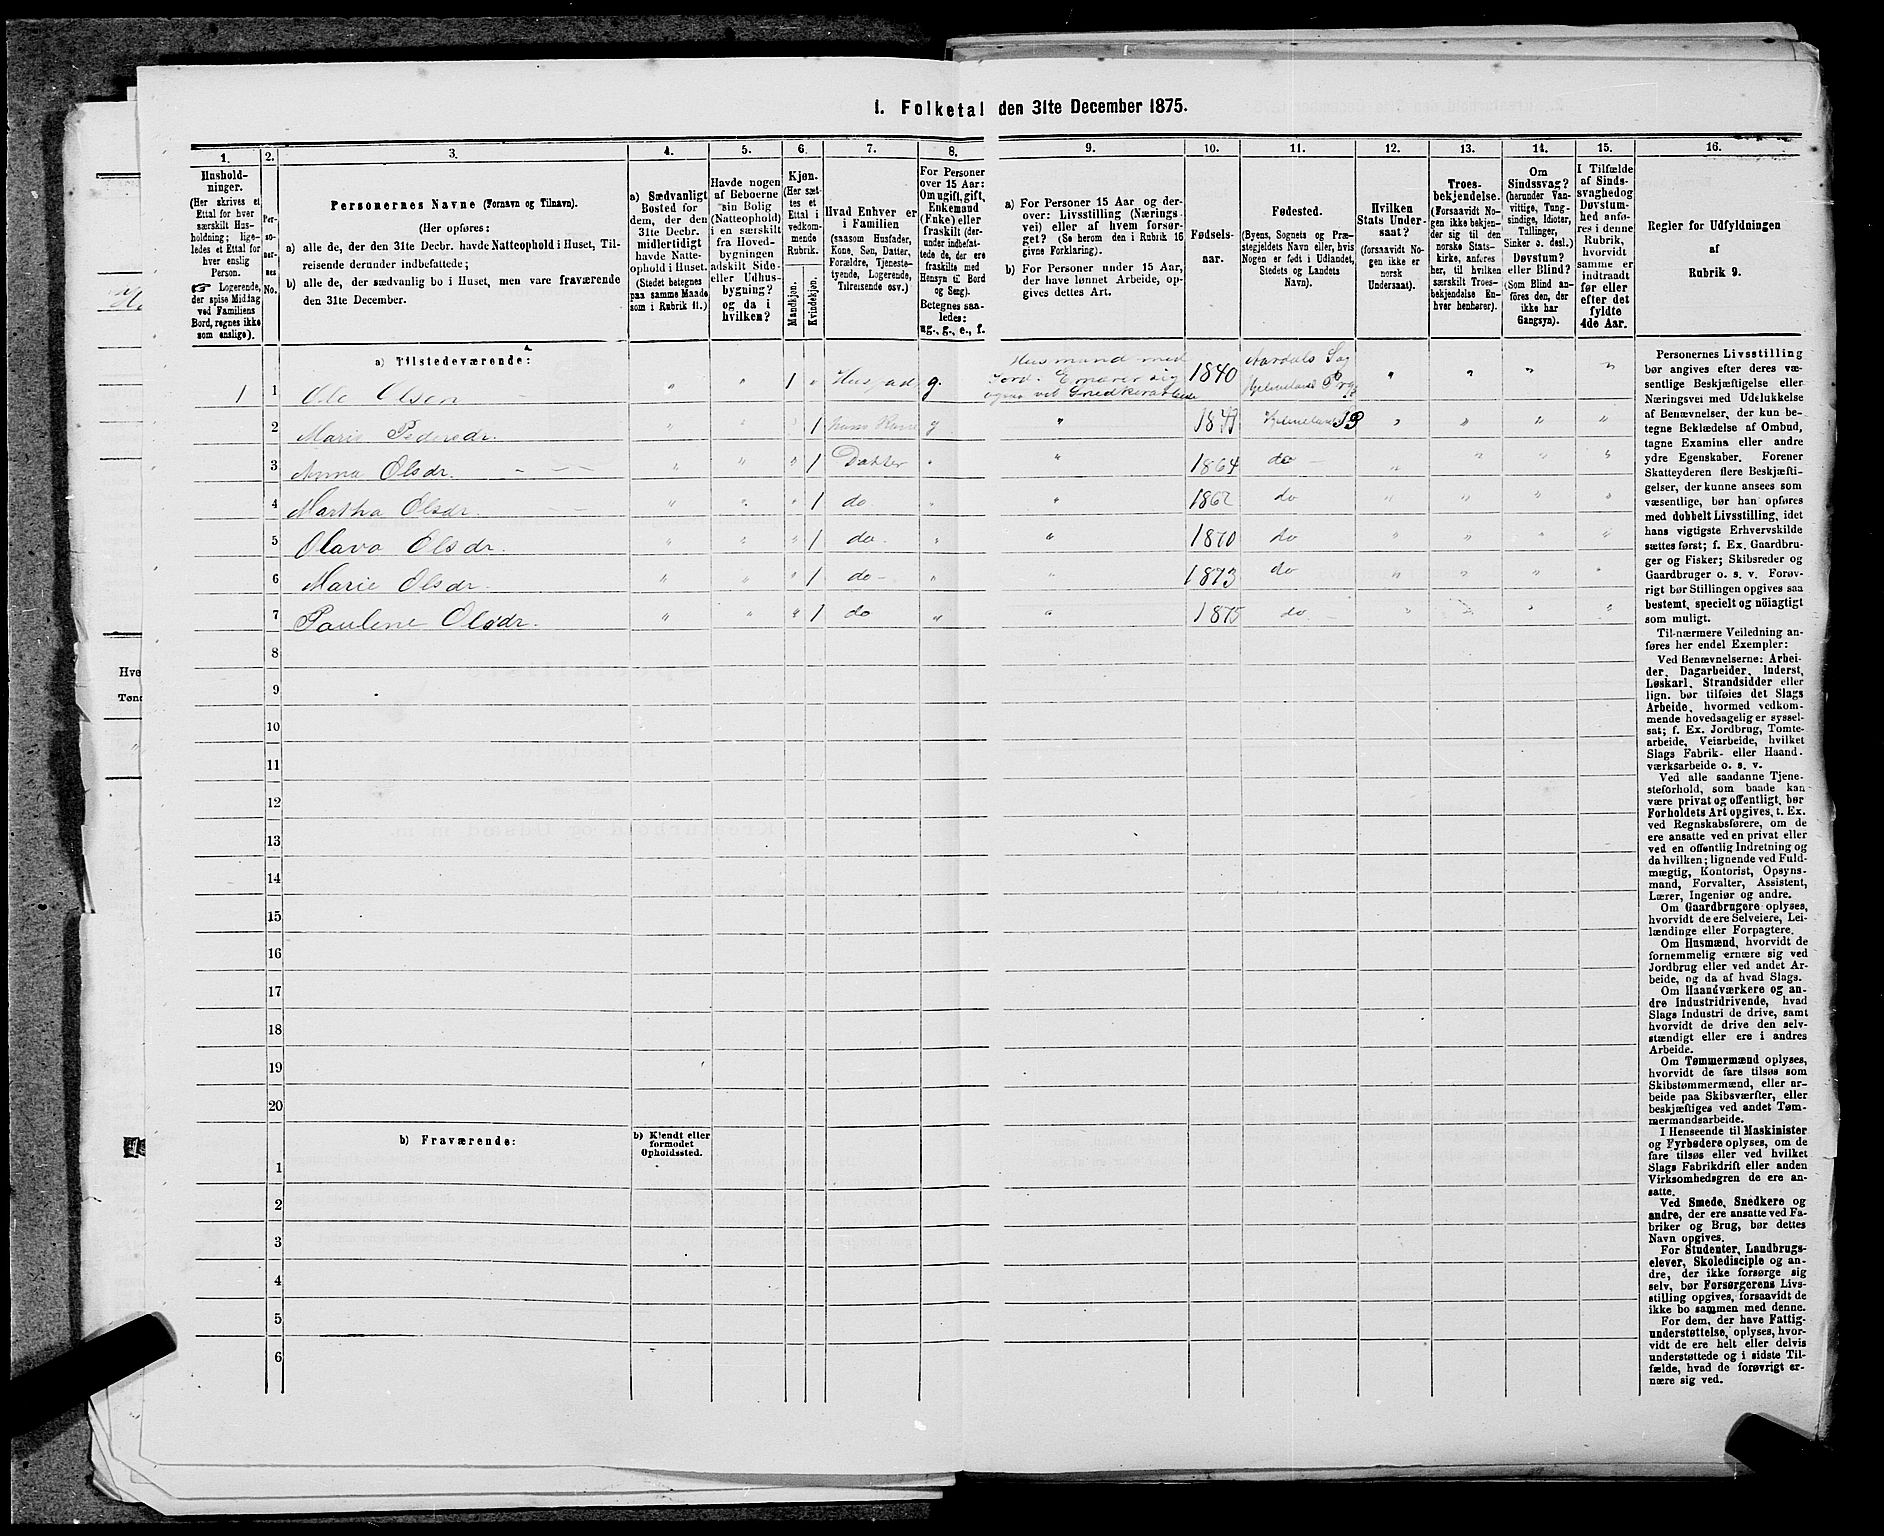 1. Folketal den 31te December 1875.
1.
2.
3.
4.
5.
6.
7.
8.
9.
10.
11.
12.
13.
14.
15.
16.
Hushold-
ninger.
(Her skrives et
Ettal for hver
særskilt Hus-
holdning; lige-
ledes et Ettal for
hver enslig
Person.
☞ Logerende,
der spise Middag
ved Familiens
Bord, regnes ikke
som enslige).
Per-
so-
ner-
nes
No.
Personernes Navne (Fornavn og Tilnavn).
(Her opføres:
a) alle de, der den 31te Decbr. havde Natteophold i Huset, Til-
reisende derunder indbefattede;
b) alle de, der sædvanlig bo i Huset, men vare fraværende
den 31te December.
a) Sædvanligt
Bosted for
dem, der den
31te Decbr.
midlertidigt
havde Natte-
ophold i Huset.
(Stedet betegnes
paa samme Maade
som i Rubrik 11.)
Havde nogen
af Beboerne
sin Bolig
(Natteophold)
i en særskilt
fra Hoved-
bygningen
adskilt Side-
eller Udhus-
bygning?
og da i
hvilken?
Kjøn.
(Her sæt-
tes et
Ettal i
vedkom-
mende
Rubrik.
Mandkjøn.
Kvindekjøn.
Hvad Enhver er
i Familien
(saasom Husfader,
Kone, Søn, Datter,
Forældre, Tjeneste-
tyende, Logerende,
Tilreisende osv.)
For Personer
over 15 Aar:
Om ugift, gift,
Enkemand
(Enke) eller
fraskilt (der-
under indbefat-
tede de, der ere
fraskilte med
Hensyn til Bord
og Seng).
Betegnes saa-
ledes:
ug., g., e., f.
a) For Personer 15 Aar og der-
over: Livsstilling (Nærings-
vei) eller af hvem forsør-
get? (Se herom den i Rubrik 16
givne Forklaring).
b) For Personer under 15 Aar,
der have lønnet Arbeide, op-
gives dettes Art.
Fødsels-
aar.
Fødested.
(Byens, Sognets og Præ-
stegjeldets Navn eller, hvis
Nogen er født i Udlandet,
Stedets og Landets
Navn).
Hvilken
Stats Under-
saat?
(forsaavidt No-
gen ikke er
norsk
Undersaat).
Troes-
bekjendelse.
(Forsaavidt No-
gen ikke bekjen-
der sig til den
norske Stats-
kirke, anføres
her, til hvilken
særskilt Troes-
bekjendelse En-
hver henhører).
Om
Sindssvag?
(herunder Van-
vittige, Tung-
sindige, Idioter,
Tullinger,
Sinker o. desl.)
Døvstum?
eller Blind?
(Som Blind an-
føres den, der
ikke har
Gangsyn).
I Tilfælde
af Sinds-
svaghed og
Døvstum-
hed anfø-
res i denne
Rubrik,
hvorvidt
samme er
indtraadt
før eller
efter det
fyldte
4de Aar.
Regler for Udfyldningen
af
Rubrik 9.
a) Tilstedeværende:
1 1 Ole Olsen " " 1 " Husfad g. Husmand med Jord. Ernærer sig ogsaa ved Snedkerarbeide 1840 Aardals Sog Hjelmeland Prgj " " " "
2 Maria Pedersdr. " " " 1 hans Kone g " 1841 Hjelmeland S P " " " "
3 Anna Olsdr. " " " 1 Datter " " 1864 do " " " "
4 Martha Olsdr. " " " 1 do " " 1867 do " " " "
5 Olava Olsdr. " " " 1 do " " 1870 do " " " "
6 Marie Olsdr. " " " 1 do " " 1873 do " " " "
7 Paulene Olsdr. " " " 1 do " " 1875 do " " " "
8
9
10
11
12
13
14
15
16
17
18
19
20
b) Fraværende:
b) Kjendt eller
formodet
Opholdssted.
1
2
3
4
5
6
Personernes Livsstilling
bør angives efter deres væ-
sentlige Beskjæftigelse eller
Næringsvei med Udelukkelse
af Benævnelser, der kun be-
tegne Beklædelse af Ombud,
tagne Examina eller andre
ydre Egenskaber. Forener
Skatteyderen flere Beskjæfti-
gelser, der kunne ansees som
væsentlige, bør han opføres
med dobbelt Livsstilling, idet
hans vigtigste Erhvervskilde
sættes først; f. Ex. Gaardbru-
ger og Fisker; Skibsreder og
Gaardbruger o. s. v. Forøv-
rigt bør Stillingen opgives saa
bestemt, specielt og nöiagtigt
som muligt.
Til nærmere Veiledning an-
føres her endel Exempler:
Ved Benævnelserne: Arbei-
der, Dagarbeider, Inderst,
Løskarl, Strandsidder eller
lign. bør tilføies det Slags
Arbeide, hvormed vedkom-
mende hovedsagelig er syssel-
sat; f. Ex. Jordbrug, Tomte-
arbeide, Veiarbeide, hvilket
Slags Fabrik- eller Haand-
værksarbeide o. s. v.
Ved alle saadanne Tjene-
steforhold, som baade kan
være privat og offentligt, bør
Forholdets Art opgives, t. Ex.
ved Regnskabsførere, om de
ere ansatte ved en privat eller
ved en offentlig Indretning og
da hvilken; lignende ved Fuld-
mægtig, Kontorist, Opsyns-
mand, Forvalter, Assistent,
Lærer, Ingeniør og andre.
Om Gaardbrugere oplyses,
hvorvidt de ere Selveiere, Lei-
lændinge eller Forpagtere.
Om Husmænd, hvorvidt de
fornemmelig ernære sig ved
Jordbrug eller ved andet Ar-
beide, og da af hvad Slags.
Om Haandværkere og an-
dre Industridrivende, hvad
Slags Industri de drive, samt
hvorvidt de drive den selv-
stændigt eller ere i andres
Arbeide.
Om Tømmermænd oplyses,
hvorvidt de fare tilsøs som
Skibstømmermænd, eller ar-
beide paa Skibsværfter, eller
beskjæftiges ved andet Tøm-
mermandsarbeide.
I Henseende til Maskinister
og Fyrbødere oplyses, om de
fare tilsøs eller ved hvilket
Slags Fabrikdrift eller anden
Virksomhedsgren de ere an-
satte.
Ved Smede, Snedkere og
andre, der ere ansatte ved Fa-
briker og Brug, bør dettes
Navn opgives.
For Studenter, Landbrugs-
elever, Skoledisciple og an-
dre, der ikke forsørge sig
selv, bør Forsørgerens Livs-
stilling opgives, forsaavidt de
ikke bo sammen med denne.
For dem, der have Fattig-
understøttelse, oplyses, hvor-
vidt de ere helt eller delvis
understøttede og i sidste Til-
fælde, hvad de forøvrigt er-
nære sig ved.